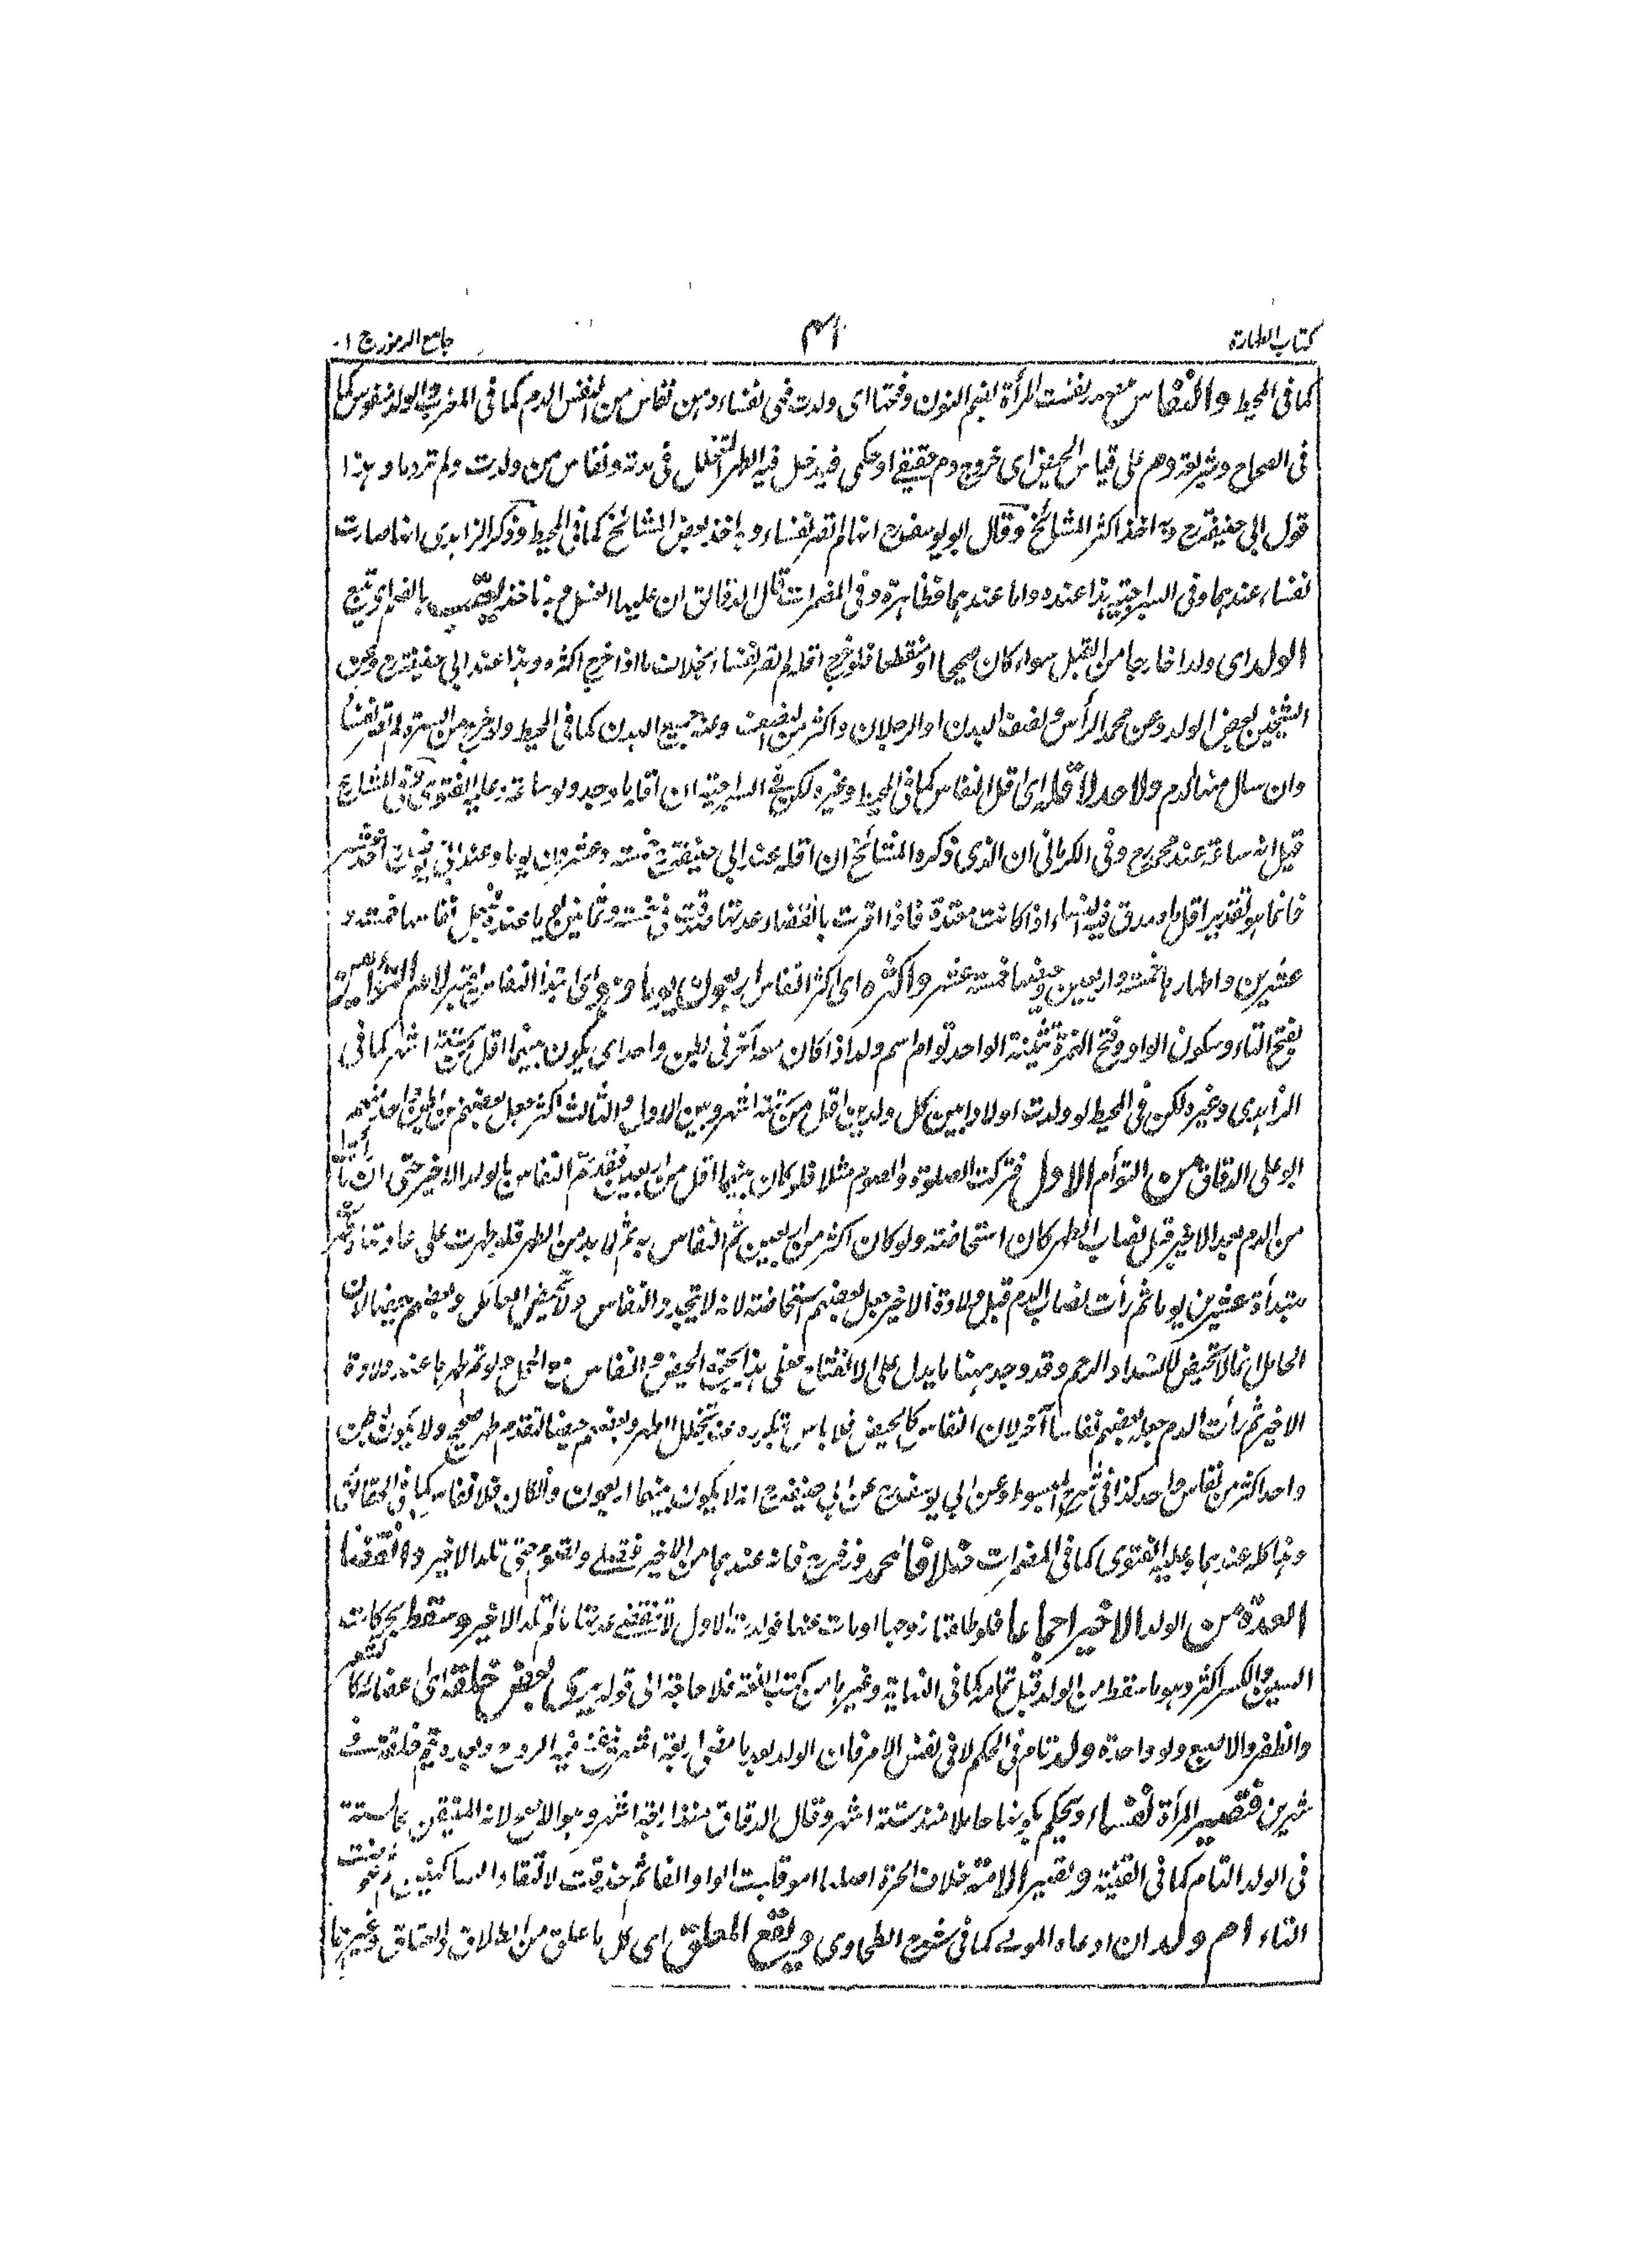 كتاب الطهارة
٤١
جامع الرموز ج ١
كما فى المحيط والنفاس مصدر نفست المرأة بضم النون وفتحها اى ولدت فهى نفساء وهن نفاس من النفس الدم كما فى المغرب والولد منفوس كما
فى الصحاح وشريعة دم على قياس الحيض اى خروج دم حقيقى او حكمى فيدخل فيه الطهر المتخلل فى مدته ونفاس من ولدت ولم تر دما وهذا
قول ابى حنيفة رح وبه اخذ اكثر المشائخ وقال ابو يوسف رح انها لم تصر نفساء وبه اخذ بعض المشائخ كما فى المحيط وذكر الزاهدى انها صارت
نفساء عندهما وفى السراجية هذا عنده واما عندهما فطاهرة وفى المضمرات قال الدقاق ان عليها الغسل وبه ناخذ يعقب بالضم اى يتبع
الولد اى ولدا خارجا من القبل سواء كان صحيحا او منقطعا فلو خرج اقله لم تصر نفساء بخلاف ما اذا خرج اكثره وهذا عند ابى حنيفة رح وعن
الشيخين بعض الولد وعن محمد الرأس ونصف البدن او الرجلان واكثر من النصف وعنه جميع البدن كما فى المحيط ولو خرج من السرة لم تصر نفساء
وان سال منها الدم ولا حد لاقله اى اقل النفاس كما فى المحيط وغيره لكن فى السراجية ان اقلها ما وجد ولو ساعة وعليه الفتوى وفى المشارع
قيل انه ساعة عند محمد رح وفى الكرمانى ان الذى ذكره المشائخ ان اقله عند ابى حنيفة رح خمسة وعشرون يوما وعند ابى يوسف احد عشر
فانما هو تقدير اقل ما صدق فيه النساء اذا كانت معتدة فاذا اقرت بانقضاء عدتها صدقت فى خمسة وثمانين يوما عنده فيجعل نفاسها خمسة و
عشرين واطهارها خمسة واربعين وحيضها خمسة عشر واكثره اى اكثر النفاس اربعون يوما وهو اى ابتداء النفاس يعتبر لام التوأمين
بفتح التاء وسكون الواو وفتح الهمزة تثنية الواحد توأم اسم ولد اذا كان معه آخر فى بطن واحد اى يكون بينهما اقل من ستة اشهر كما فى
الزاهدى وغيره لكن فى المحيط لو ولدت اولادا بين كل ولدين اقل من ستة اشهر وبين الاول والثالث اكثر جعل بعضهم من بطن واحد منهم
ابو على الدقاق من التوأم الاول فتركت الصلوة والصوم مثلا فلو كان بينهما اقل من اربعين فقد تم النفاس بالولد الاخير حتى ان ما رأته
من الدم بعد الاخير قبل نصاب الطهر كان استحاضة ولو كان اكثر من اربعين تم النفاس به ثم لا بد من الطهر فلو طهرت على عادتها وهى
مبتدأة عشرين يوما ثم رأت نصاب الدم قبل ولادة الاخير جعل بعضهم استحاضة لانه لا يتجدد النفاس ولا تحيض الحامل وبعضهم حيضا لان
الحامل انما لا تحيض لانسداد الرحم وقد وجد ههنا ما يدل على الانفتاح فعلى هذا يجتمع الحيض والنفاس مع الحبل ولو تم طهرها عند ولادة
الاخير ثم رأت الدم جعله بعضهم نفاسا آخر لان النفاس كالحيض فلا بأس بتكرره عند تخلل الطهر وبعضهم حيضا لتقدم طهر صحيح ولا يكون لبطن
واحد اكثر من نفاس واحد كذا فى شرح المبسوط وعن ابى يوسف رح عن ابى حنيفة رح انه لا يكون بينهما اربعون وان كان فلا نفاس كما فى الحقائق
وهذا كله عندهما وعليه الفتوى كما فى المضمرات خلافا لمحمد وزفر رح فانه عندهما من الاخير فتصلى وتصوم حتى تلد الاخير وانقضاء
العدة من الولد الاخير اجماعا فلو طلقها زوجها او مات عنها فولدت الاول لا تنقضى عدتها ما لم تلد الاخير وسقط بحركات
السين والكسر اكثر وهو ما سقط من الولد قبل تمامه كما فى النهاية وغيرها من كتب اللغة فلا حاجة الى قوله يرى بعض خلقه اى اعضائه كالشعر
والظفر والاصبع ولو واحدة ولد تام فى الحكم لا فى نفس الامر فان الولد بعد ما مضى اربعة اشهر ينفخ فيه الروح وبعده يتم خلقه فى
شهرين فتصير المرأة نفساء ويحكم بكونها حاملا منذ ستة اشهر وقال الدقاق منذ اربعة اشهر وهو الاصح لانه المتيقن والستة
فى الولد التام كما فى القنية وتصير الامة خلاف الحرة اصلها اموة قلبت الواو الفا ثم حذفت لالتقاء الساكنين ثم عوضت
التاء ام ولد ان ادعاه المولى كما فى شرح الطحاوى ويقع المعلق اى كل ما علق من الطلاق والعتاق وغيرها